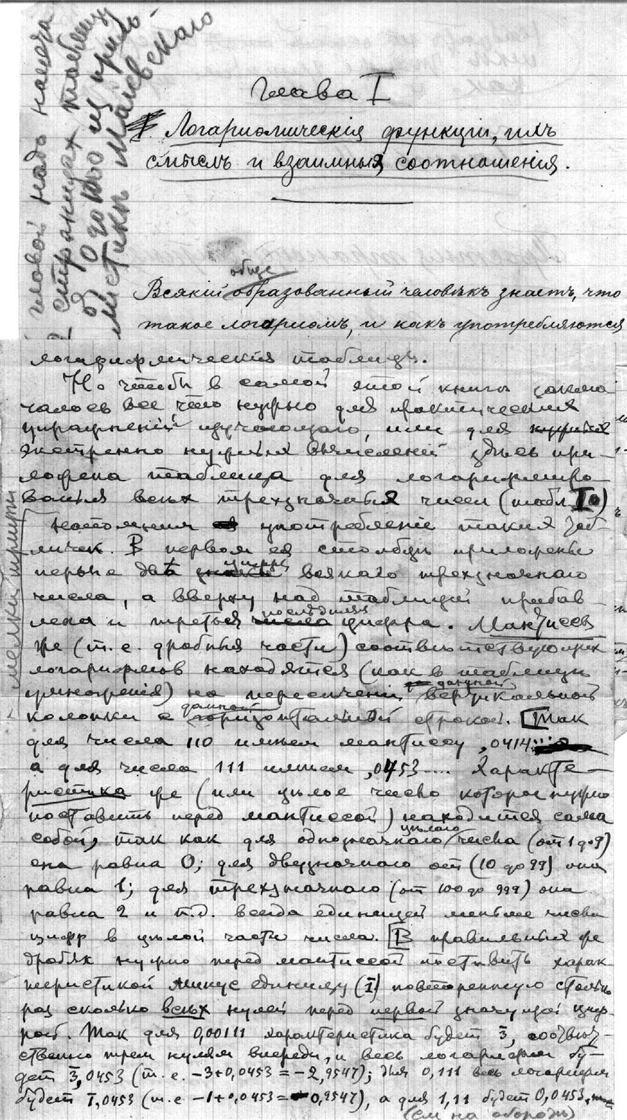 Глава I
Логариѳмическія функціи, ихъ
смыслъ и взаимныя соотношенія.
обще
Всякій образованный человѣкъ знаетъ, что
такое логариѳмъ, и какъ употребляются
логарифмическія таблицы.
Но чтобы в самой этой книгѣ заклю
чалось все что нужно для практических
упражненій изучающаго, или для
экстренно нужных вычисленій здѣсь при
ложена таблица для логарифмиро
ванія всѣх трехзначных чисел (табл. Iа)
Напомним употребленіе таких таб
личек. В первом ея столбцѣ приложены
первые двѣ цифры всякаго трехзначнаго
числа, а вверху над таблицей прибав
лена и третья последняя цифра. Мантиссы
же (т.е. дробныя части) соответствующих
логарифмов находятся (как в таблицѣ
умноженія) на пересечении данной вертикальной
колонки с данной горизонтальной строкой. Так
для числа 110 имѣем мантиссу ,0414
а для числа 111 имѣем ,0453.... Характе-
ристика же (или цѣлое число которое нужно
поставить перед мантиссой) находится сама
собой, так как для однозначнаго цѣлаго числа (от 1 до 9)
она равна 0; для двузначнаго (10 до 99) она
равна 1; для трехзначнаго (от 100 до 999) она
равна 2 и т.д. всегда единицей меньше числа
цифр в цѣлой части числа. В правильных же
дробях нужно перед мантиссой поставить харак
теристикой минус единицу (1̅) повторенную столько
раз сколько всѣх нулей перед первой значущей циф
рой. Так для 0,00111 характеристика будет 3̅, соответ
ственно трем нулям впереди, и весь логарифм бу-
дет 3̅,0453 (т.е. -3+0,0453=-2,9547); для 0,111 весь логарифм
будет 1̅,0453 (т.е -1+0,0453=-0,9547), а для 1,11 будет 0,0453,
(см на обороте)
мелкий шрифт
главой надо напеча
2 страницах таблицу
от 0 до 1000 из
мистики Маневскаго